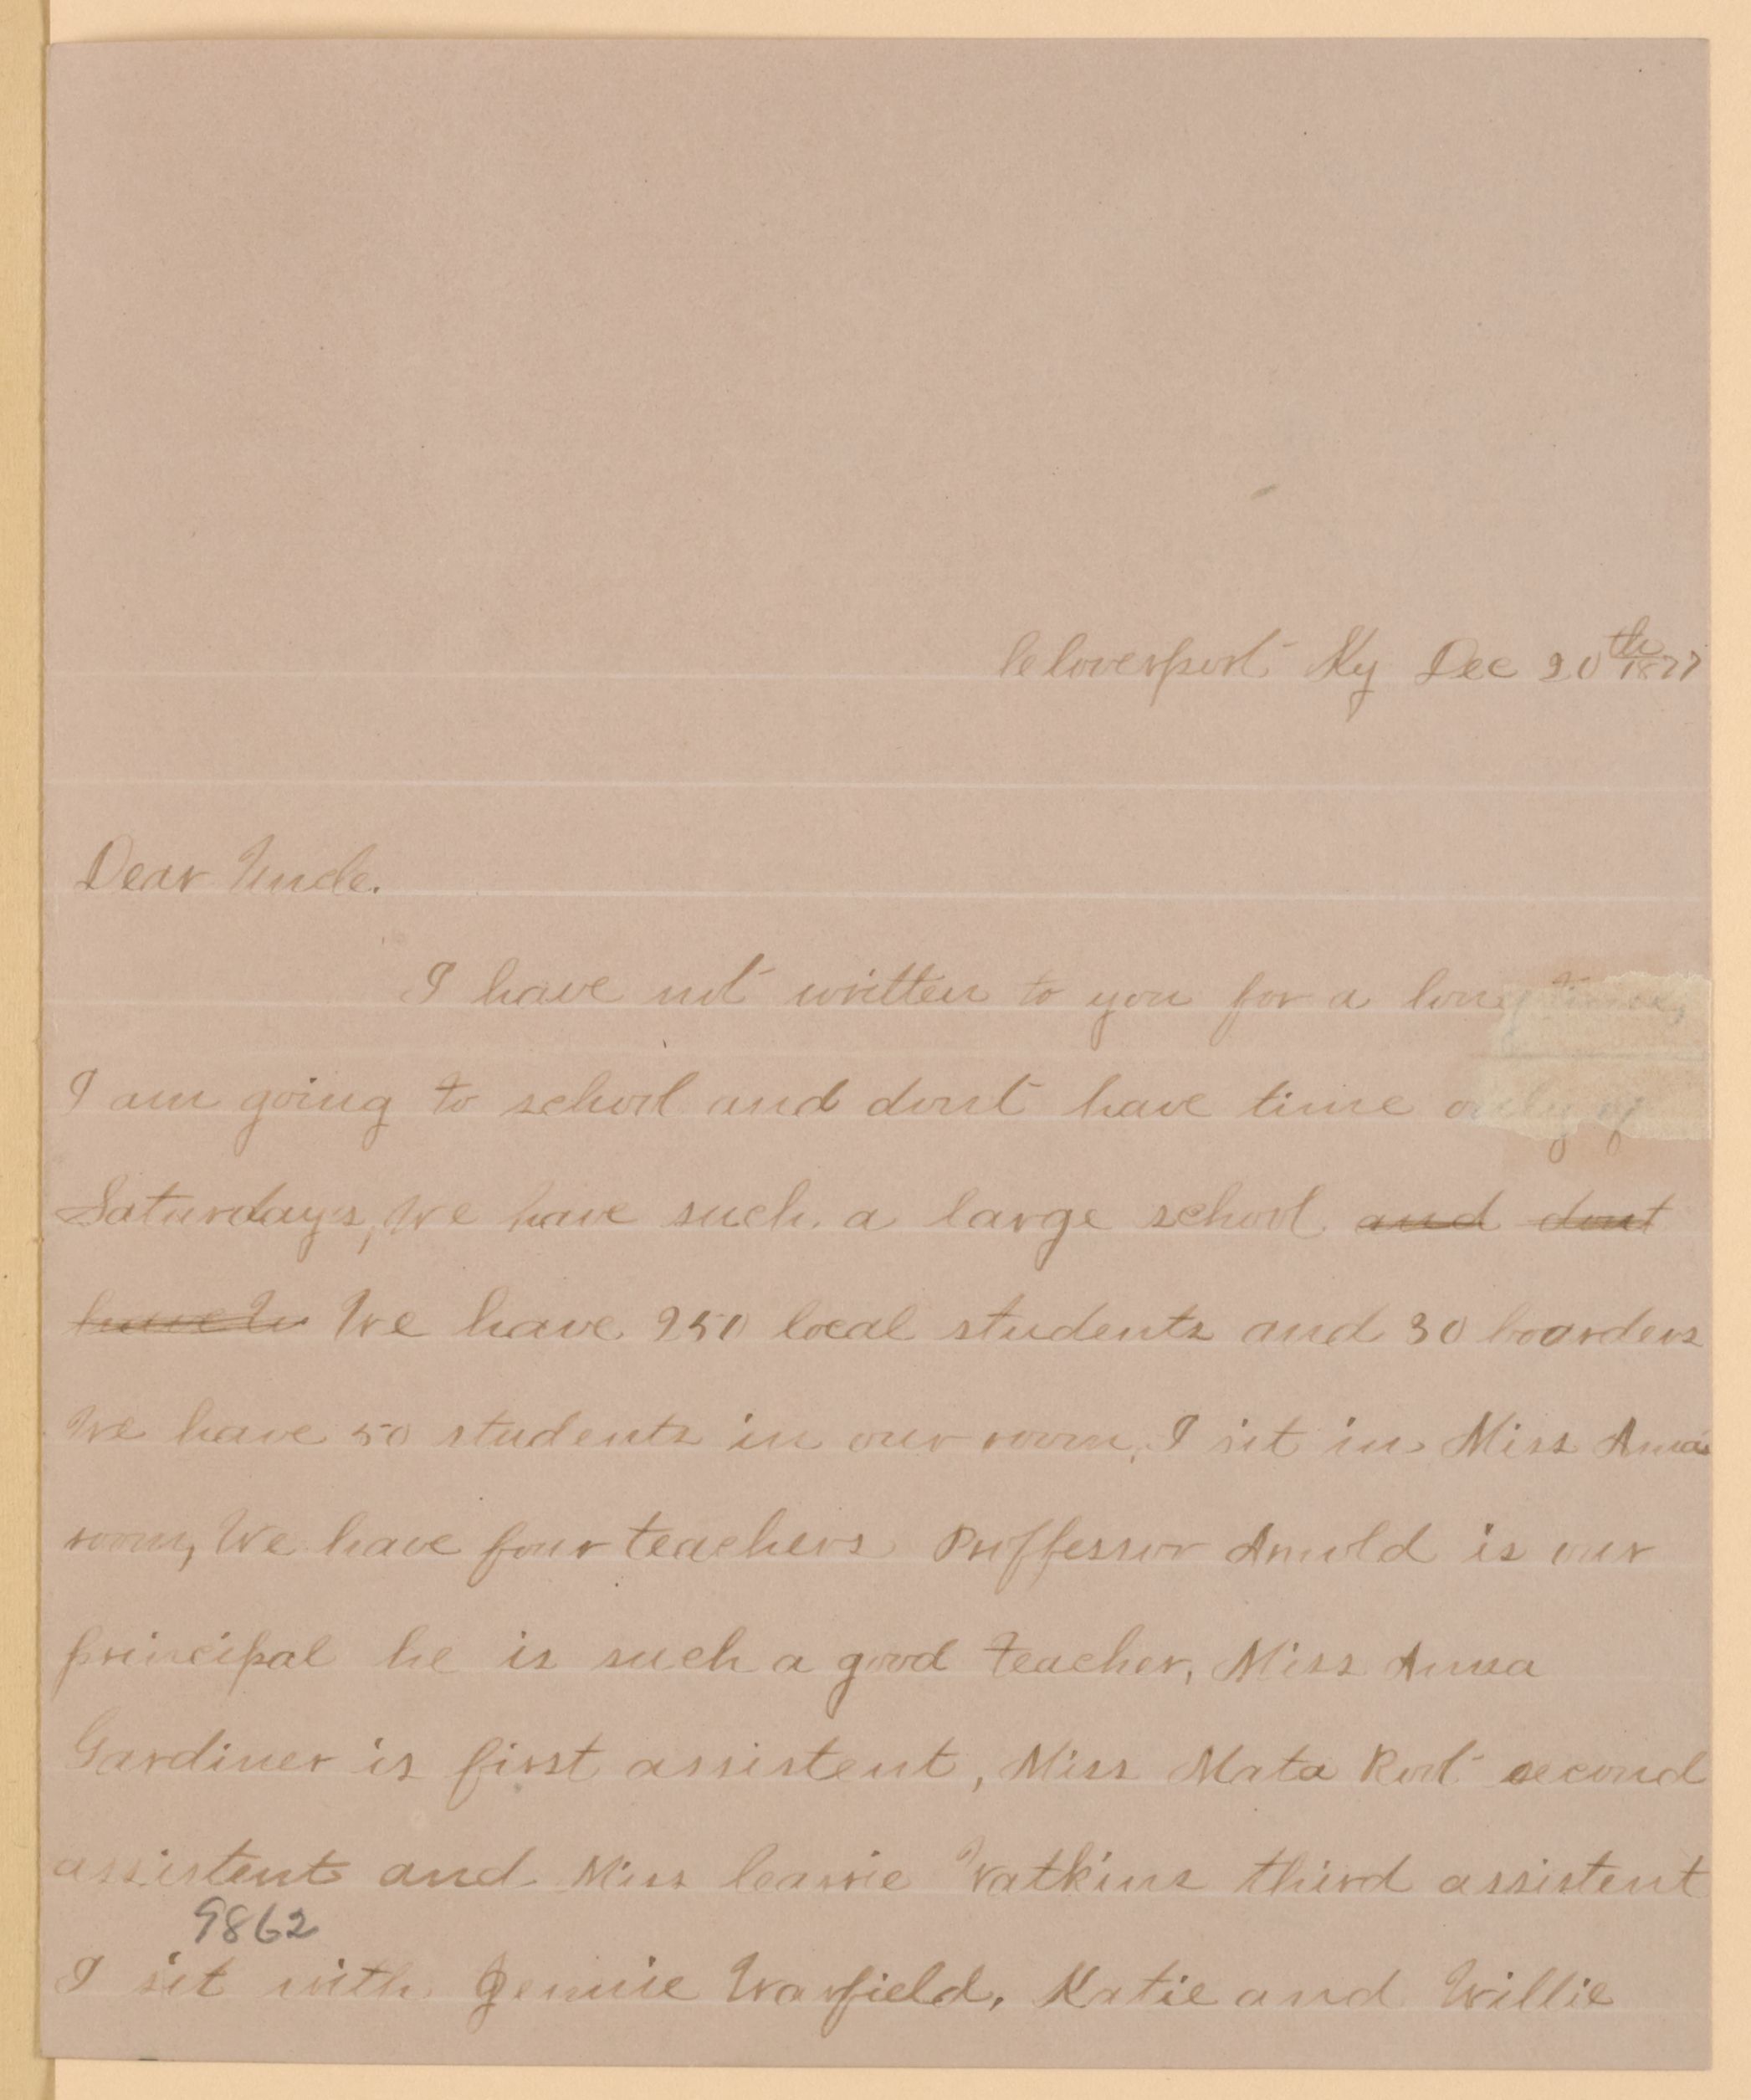 Cloverport Ky Dec 20th 1877
Dear Uncle.
I have not written to you for a long time,
I am going to school and dont have time only of
Saturdays, We have such a large school and dont
We have 250 local students and 30 boarders
We have 50 students in our room, I sit in Miss Anna
room, We have four teachers Proffessor Arnold is our
principal he is such a good teacher, Miss Anna
Gardiner is first assistent, Miss Mata Root second
assistent and Miss Carrie Watkins third assistent
9862
I sit with Jennie Warfield, Katie and Willie